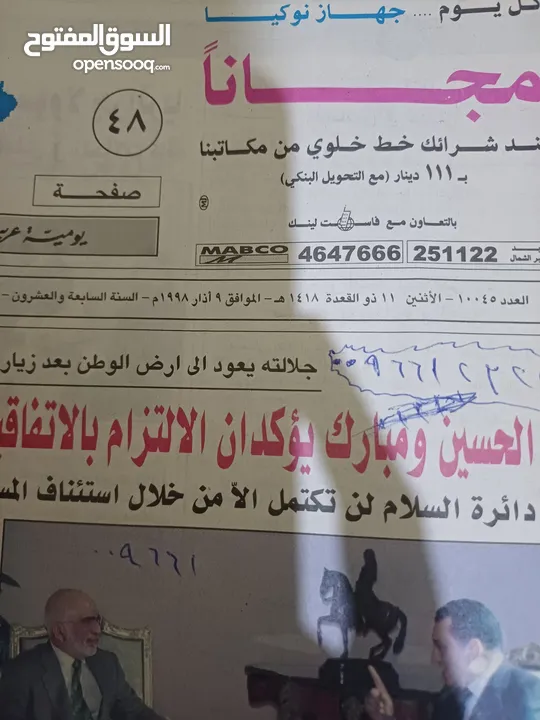 السوق المفتوح
opensooq.com
كل يـوم .... جهـاز نوكيـا
مجـــانـاً
٤٨
صفحـة
ـند شرائك خط خلوي من مكاتبنا
بـ ١١١ دينار (مع التحويل البنكي)
بالتعاون مع فاست لينك
يوميّة عربـ
MABCO 4647666 251122
العدد ١٠٠٤٥ – الأثنين ١١ ذو القعدة ١٤١٨ هـ – الموافق ٩ آذار ١٩٩٨م – السنة السابعة والعشرون –
جلالته يعود الى ارض الوطن بعد زيار
الحسين ومبارك يؤكدان الالتزام بالاتفاقيـ
دائرة السلام لن تكتمل الاّ من خلال استئناف المسـ
٠٠٩٦٦١